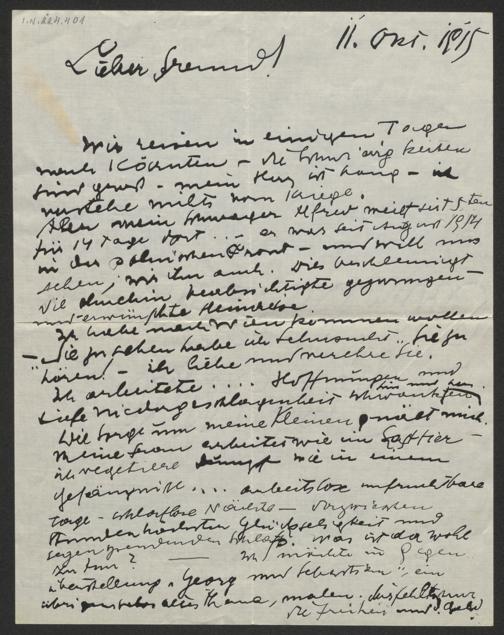 I.N. 224.401
11. Okt. 1915
Lieber Freund!
Wir reisen in einigen Tagen
nach Kärnten – die Schwierigkeiten
sind gross – mein Herz ist bang – ich
verstehe nichts vom Kriege
Aber mein Schwager Alfred weilt seit 5ten
für 14 Tage dort ... – er war seit August 1914
in der polnischen Front – und will uns
sehen, wir ihn auch. Dies beschleunigt
die ohnehin beabsichtigte gezwungen –
und erwünschte Heimreise.
Ich habe nach Wien kommen wollen
– Sie zu sehen habe ich Sehnsucht, Sie zu
hören! – ich liebe und verehre Sie.
Ich arbeitete .... Hoffnungen und
tiefe Niedergeschlagenheit schwankten
hin und her.
Die Sorge um meine Kleinen quält mich.
Meine Frau arbeitet wie ein
ich vegetiere dumpf wie in einem
Gefängnisse .... arbeitslose unfruchtbare
Tage – schlaflose Nächte – dazwischen
Stunden höchster Glückseligkeit und
Schlafs. Was ist da wohl
zu tun? — Ich möchte in Gegen
überstellung „Georg und Sebastian", ein
übrigens altes Thema, malen. das fehlt nur
die Freiheit und Geld